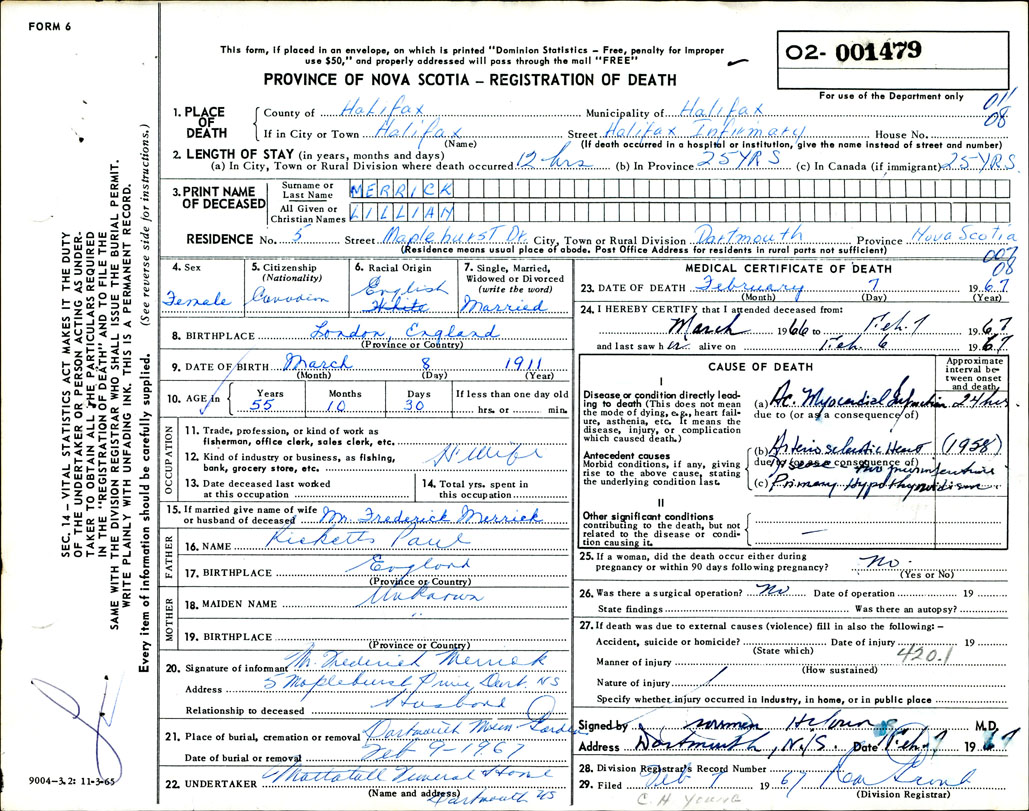 FORM 6
This form, if placed in an envelope, on which is printed "Dominion Statistics – Free, penalty for improper
use $50," and properly addressed will pass through the mail "FREE"
PROVINCE OF NOVA SCOTIA – REGISTRATION OF DEATH
02- 001479
For use of the Department only
011
08
1. PLACE OF DEATH
County of Halifax Municipality of Halifax
If in City or Town Halifax Street Halifax Infirmary House No.
(Name) (If death occurred in a hospital or institution, give the name instead of street and number)
2. LENGTH OF STAY (in years, months and days)
(a) In City, Town or Rural Division where death occurred 12 hrs (b) In Province 25 YRS (c) In Canada (if immigrant) 25 YRS
3. PRINT NAME OF DECEASED
Surname or Last Name MERRICK
All Given or Christian Names LILLIAN
RESIDENCE No. 5 Street Maplehurst Dr. City, Town or Rural Division Dartmouth Province Nova Scotia
(Residence means usual place of abode. Post Office Address for residents in rural parts not sufficient)
007
08
4. Sex Female
5. Citizenship (Nationality) Canadian
6. Racial Origin English White
7. Single, Married, Widowed or Divorced (write the word) Married
8. BIRTHPLACE London, England
(Province or Country)
9. DATE OF BIRTH March 8 1911
(Month) (Day) (Year)
10. AGE in Years 55 Months 10 Days 30 If less than one day old hrs. or min.
OCCUPATION
11. Trade, profession, or kind of work as fisherman, office clerk, sales clerk, etc.
12. Kind of industry or business, as fishing, bank, grocery store, etc. H'Wife
13. Date deceased last worked at this occupation
14. Total yrs. spent in this occupation
15. If married give name of wife or husband of deceased Mr. Frederick Merrick
FATHER
16. NAME Ricketts Paul
17. BIRTHPLACE England
(Province or Country)
MOTHER
18. MAIDEN NAME Unknown
19. BIRTHPLACE "
(Province or Country)
20. Signature of informant Mr. Frederick Merrick
Address 5 Maplehurst Drive, Dart. NS
Relationship to deceased Husband
21. Place of burial, cremation or removal Dartmouth Mem. Garden
Date of burial or removal Feb 9-1967
22. UNDERTAKER Mattatall Funeral Home
(Name and address) Dartmouth NS
MEDICAL CERTIFICATE OF DEATH
23. DATE OF DEATH February 7 1967
(Month) (Day) (Year)
24. I HEREBY CERTIFY that I attended deceased from:
March 1966 to Feb. 7 1967
and last saw her alive on Feb. 6 1967
CAUSE OF DEATH
Approximate interval between onset and death
I
Disease or condition directly leading to death (This does not mean the mode of dying, e.g., heart failure, asthenia, etc. It means the disease, injury, or complication which caused death.)
(a) Ac. Myocardial Infarction 24 hrs
due to (or as a consequence of)
Antecedent causes
Morbid conditions, if any, giving rise to the above cause, stating the underlying condition last.
(b) Arteriosclerotic Heart (1958)
due to (or as a consequence of)
Disease
(c) Primary Hypothyroidism
II
Other significant conditions
contributing to the death, but not related to the disease or condition causing it. —
25. If a woman, did the death occur either during pregnancy or within 90 days following pregnancy? No.
(Yes or No)
26. Was there a surgical operation? No Date of operation 19
State findings Was there an autopsy?
27. If death was due to external causes (violence) fill in also the following: –
Accident, suicide or homicide? Date of injury 19
(State which) 420.1
Manner of injury
(How sustained)
Nature of injury
Specify whether injury occurred in industry, in home, or in public place
Signed by M.D.
Address Dartmouth, N.S. Date Feb. 7 1967
28. Division Registrar's Record Number
29. Filed Feb 7 1967
(Division Registrar)
C. H. Young
SEC. 14 – VITAL STATISTICS ACT MAKES IT THE DUTY
OF THE UNDERTAKER OR PERSON ACTING AS UNDER-
TAKER TO OBTAIN ALL THE PARTICULARS REQUIRED
IN THE "REGISTRATION OF DEATH" AND TO FILE THE
SAME WITH THE DIVISION REGISTRAR WHO SHALL ISSUE THE BURIAL PERMIT.
WRITE PLAINLY WITH UNFADING INK. THIS IS A PERMANENT RECORD.
Every item of information should be carefully supplied. (See reverse side for instructions.)
9004-3.2: 11-3-65